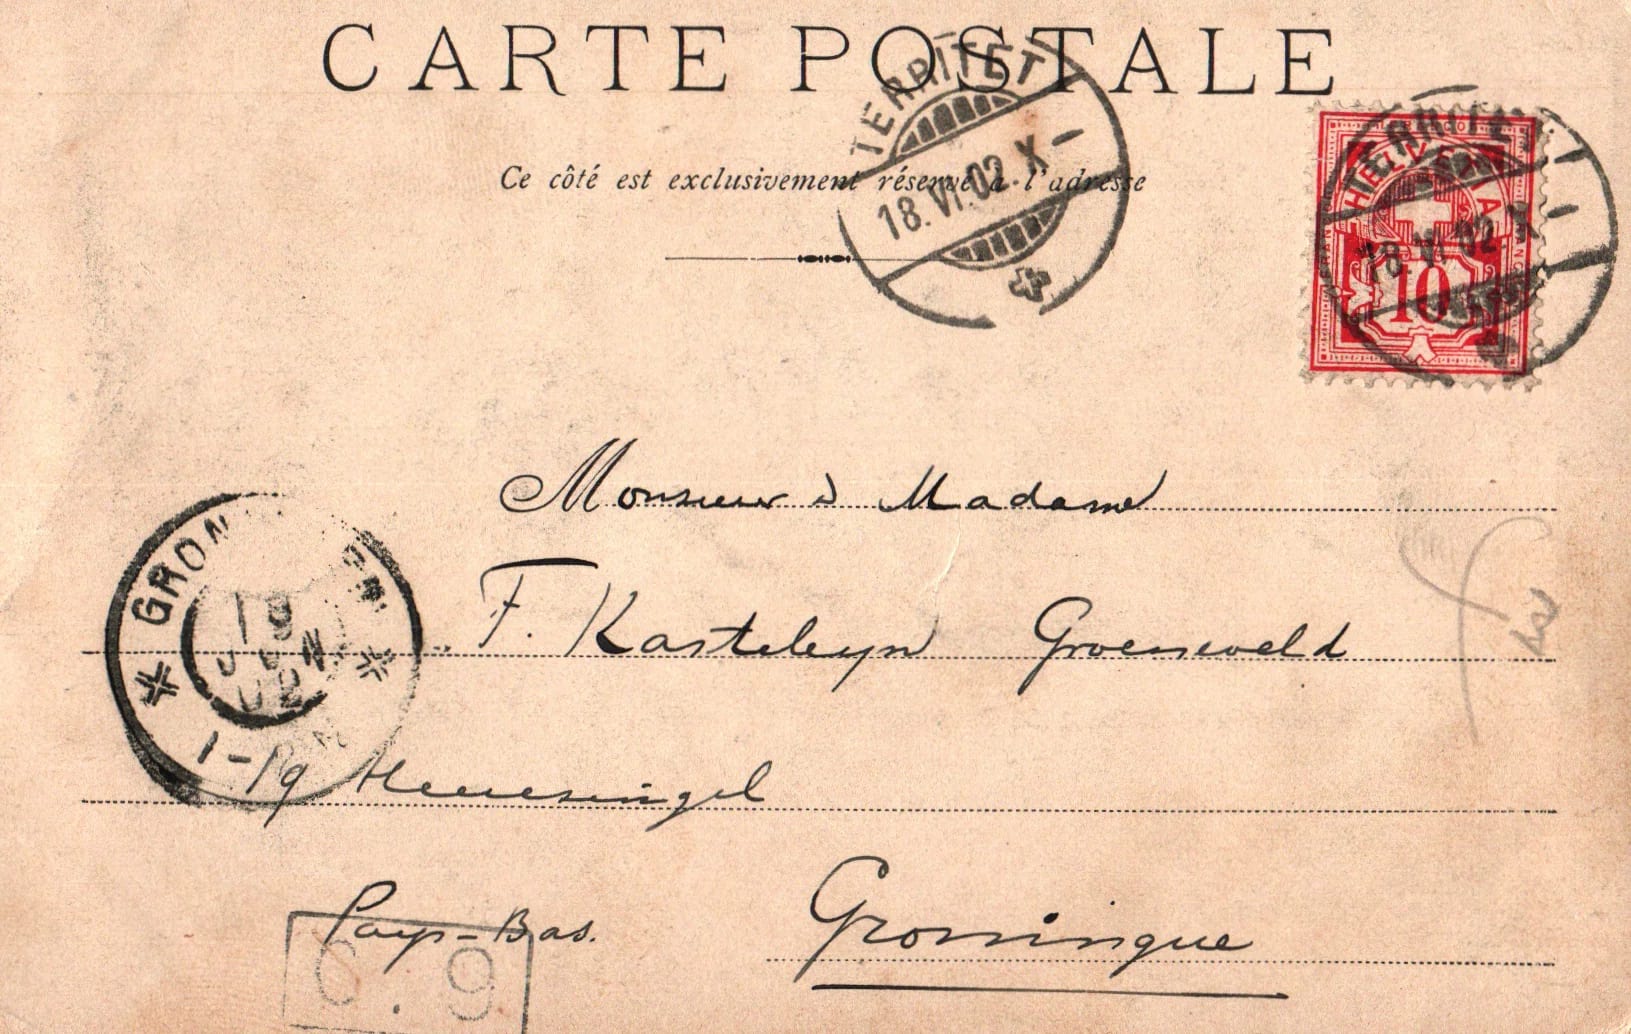 CARTE POSTALE
TERRITET
18.VI.02.X
Ce côté est exclusivement réservé à l'adresse
TERRITET
18.VI.02 X
HELVETIA
10
FRANCO
Monsieur & Madame
F. Kasteleyn Groeneveld
Heeresingel
Pays-Bas. Groningue
GRONINGEN
19
JUN
02
1-
6.9